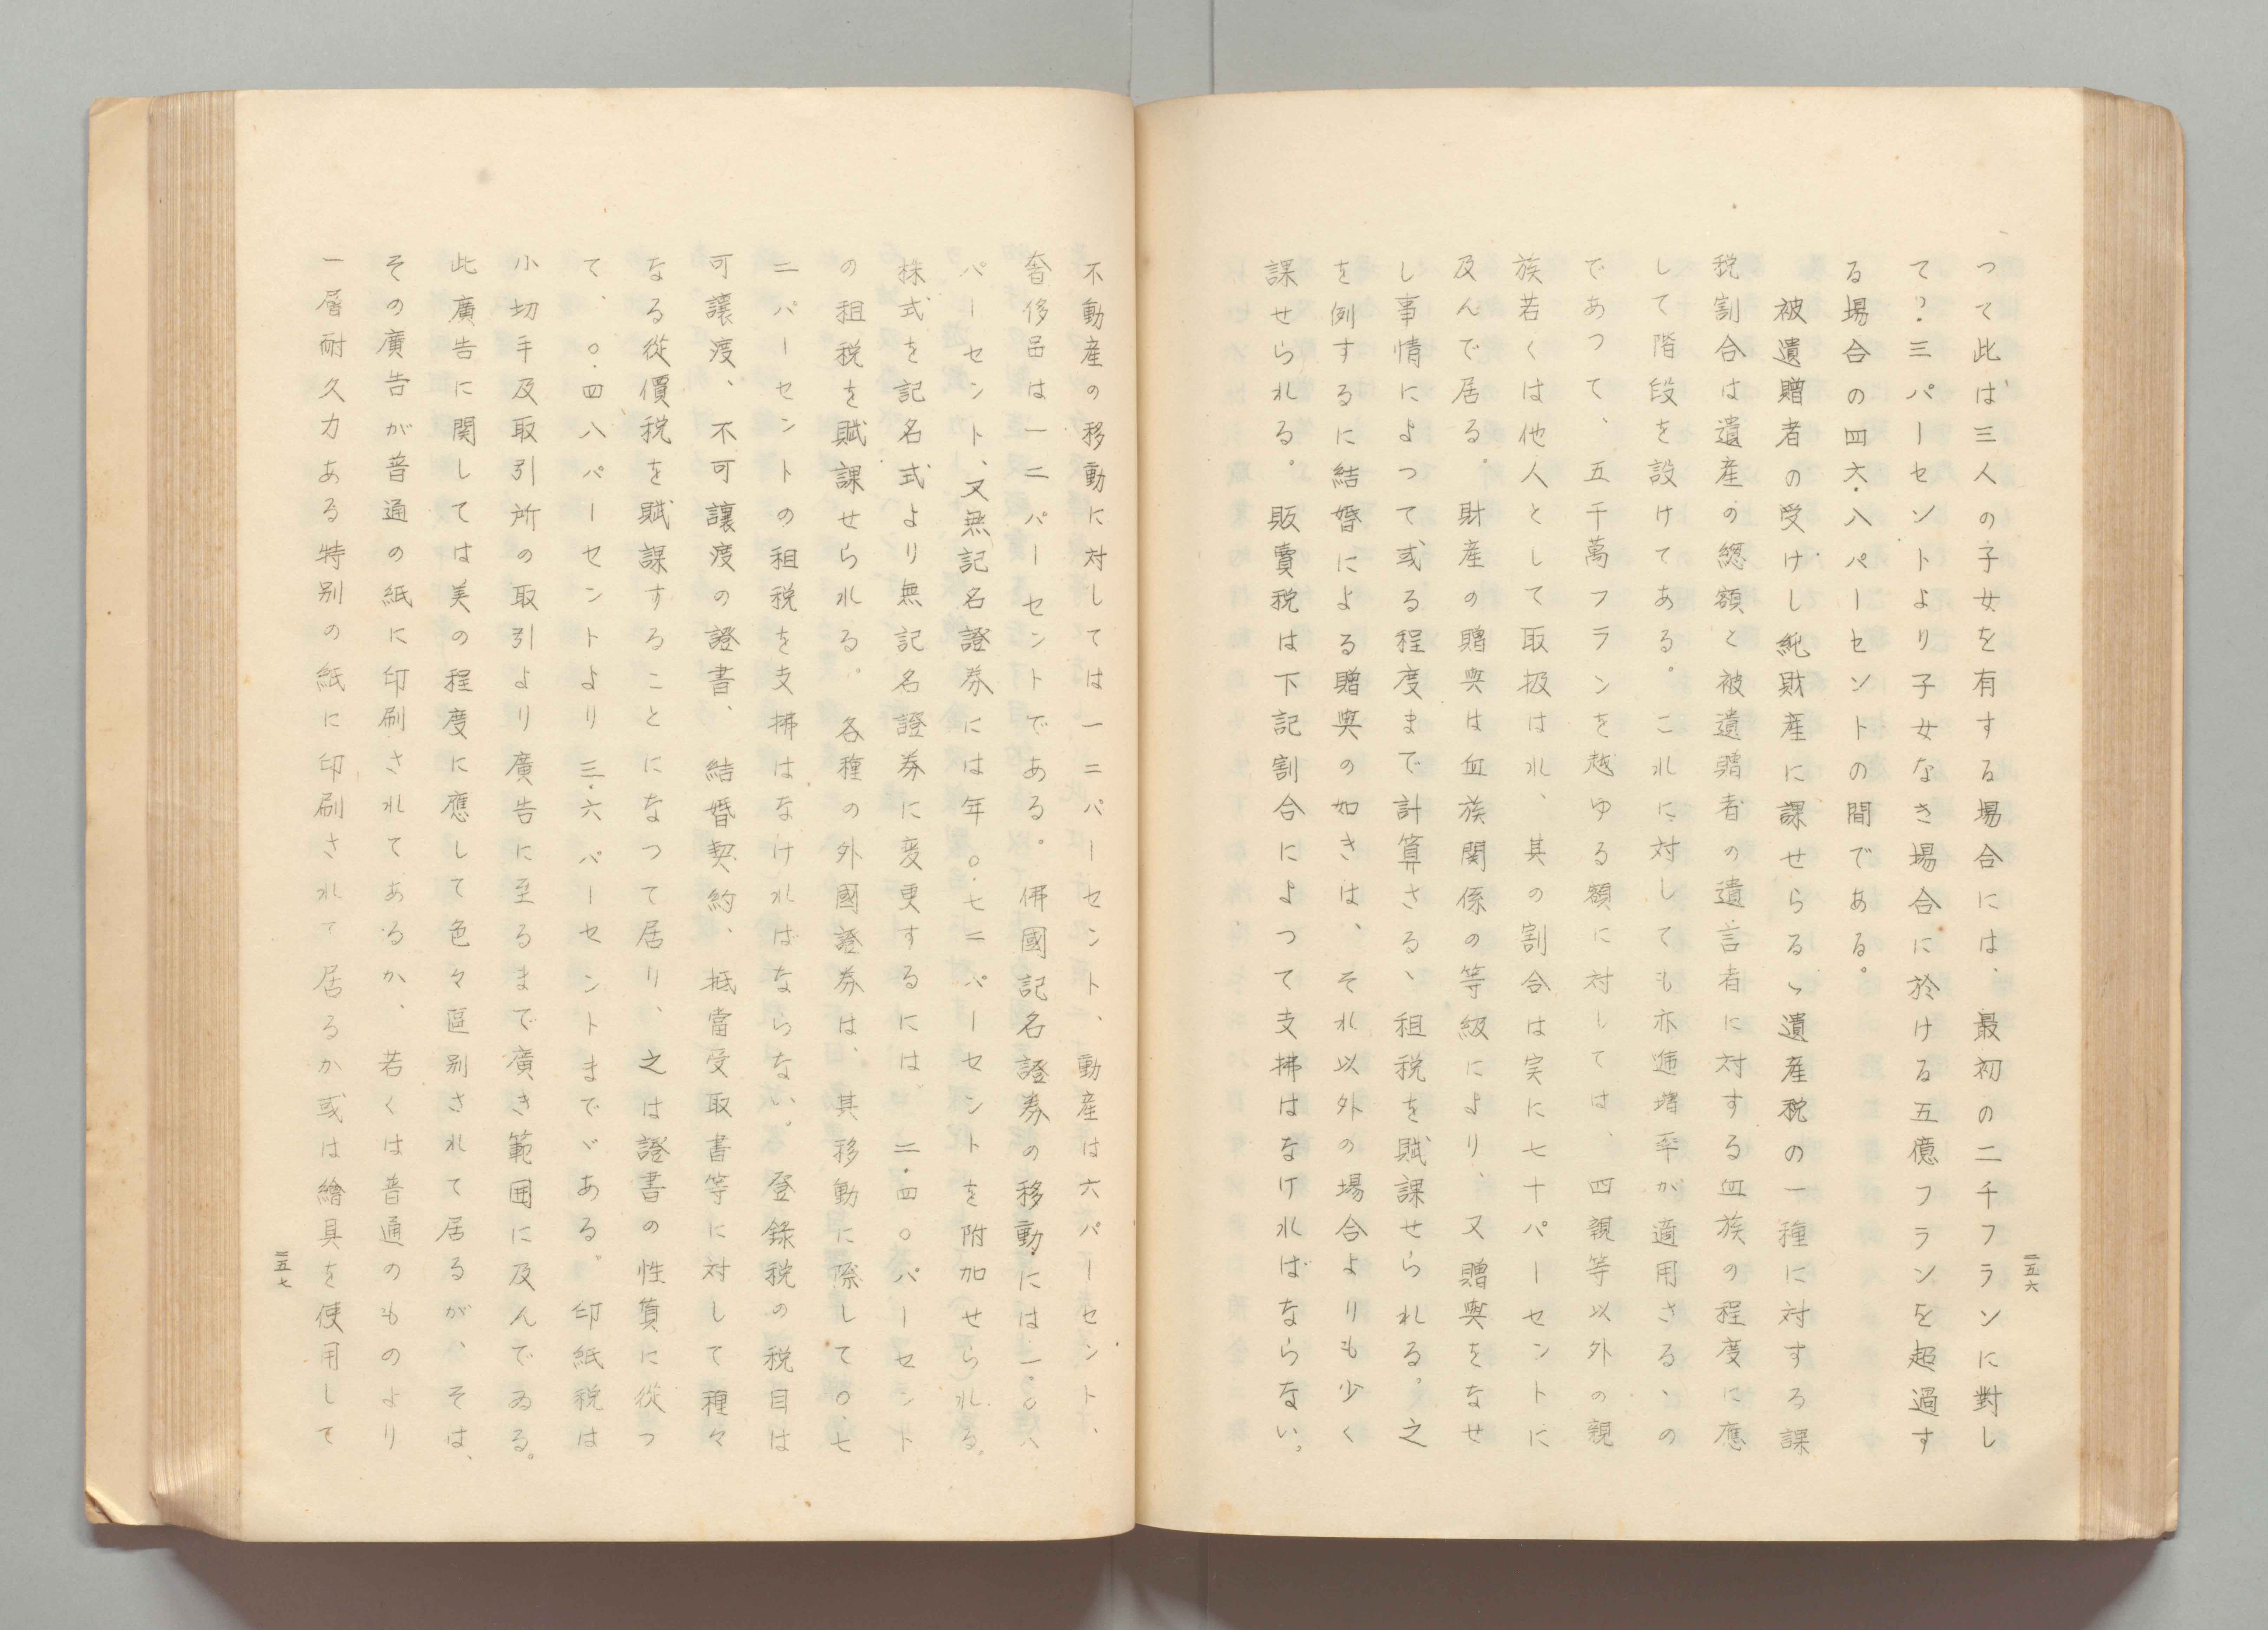 つて此は三人の子女を有する場合には、最初の二千フランに對し
て?・三パーセントより子女なき場合に於ける五億フランを超過す
る場合の四六・八パーセントの間である。
被遺贈者の受けし純財産に課せらるゝ遺産税の一種に対する課
税割合は遺産の總額と被遺贈者の遺言者に対する血族の程度に應
して階段を設けてある。これに対しても亦逓増率が適用さるゝの
であつて、五千萬フランを越ゆる額に対しては、四親等以外の親
族若くは他人として取扱はれ、其の割合は実に七十パーセントに
及んで居る。財産の贈與は血族関係の等級により、又贈與をなせ
し事情によつて或る程度まで計算さるゝ租税を賦課せられる。之
を例するに結婚による贈與の如きは、それ以外の場合よりも少く
課せられる。販賣税は下記割合によつて支拂はなければならない。
二五六
不動産の移動に対しては一二パーセント、動産は六パーセント、
奢侈品は一二パーセントである。佛國記名證券の移動には一・〇八
パーセント、又無記名證券には年〇・七二パーセントを附加せられる。
株式を記名式より無記名證券に変更するには、二・四〇パーセント
の租税を賦課せられる。各種の外國證券は、其移動に際して〇・七
二パーセントの租税を支拂はなければならない。登録税の税目は
可讓渡、不可讓渡の證書、結婚契約、抵當受取書等に対して種々
なる從價税を賦課することになつて居り、之は證書の性質に從つ
て、〇・四八パーセントより三・六パーセントまでゞある。印紙税は
小切手及取引所の取引より廣告に至るまで廣き範囲に及んでゐる。
此廣告に関しては美の程度に應して色々區別されて居るが、そは、
その廣告が普通の紙に印刷されてあるか、若くは普通のものより
一層耐久力ある特別の紙に印刷されて居るか或は繪具を使用して
二五七